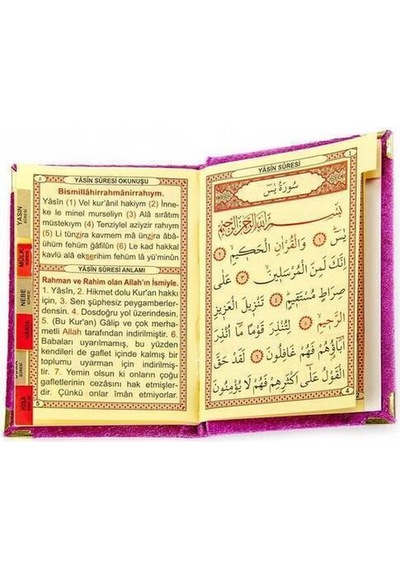 YÂSÎN SÛRESİ OKUNUŞU
Bismillâhirrahmânirrahıym.
Yâsîn (1) Vel kur'ânil hakiym (2) İnne-
ke le minel murseliyn (3) Alâ sırâtım
mustekıym (4) Tenziylel aziyzir rahiym
(5) Li tünzira kavmem mâ unzira âbâ-
ühüm fehüm ğâfilûn (6) Le kad hakkal
kavlü alâ ekserihim fehüm lâ yü'minûn
YÂSÎN SÛRESİ ANLAMI
Rahman ve Rahim olan Allah'ın İsmiyle.
1. Yâsîn, 2. Hikmet dolu Kur'an hakkı
için, 3. Sen şüphesiz peygamberler-
densin. 4. Dosdoğru yol üzerindesin.
5. (Bu Kur'an) Gâlip ve çok merha-
metli Allah tarafından indirilmiştir. 6.
Babaları uyarılmamış, bu yüzden
kendileri de gaflet içinde kalmış bir
toplumu uyarman için indirilmiş-
tir. 7. Yemin olsun ki onların çoğu
gafletlerinin cezasını hak etmişler-
dir. Çünkü onlar iman etmiyorlar.
5
YASİN
MÜLK
NEBE
YÂSÎN SÛRESİ
سُورَةُ يٰسٓ
بِسْمِ اللّٰهِ الرَّحْمٰنِ الرَّحِيمِ
يٰسٓ ﴿١﴾ وَالْقُرْاٰنِ الْحَكِيمِ ﴿٢﴾
اِنَّكَ لَمِنَ الْمُرْسَلِينَ ﴿٣﴾ عَلٰى
صِرَاطٍ مُسْتَقِيمٍ ﴿٤﴾ تَنْزِيلَ الْعَزِيزِ
الرَّحِيمِ ﴿٥﴾ لِتُنْذِرَ قَوْمًا مَٓا اُنْذِرَ
اٰبَٓاؤُهُمْ فَهُمْ غَافِلُونَ ﴿٦﴾ لَقَدْ حَقَّ
الْقَوْلُ عَلٰٓى اَكْثَرِهِمْ فَهُمْ لَا يُؤْمِنُونَ
4